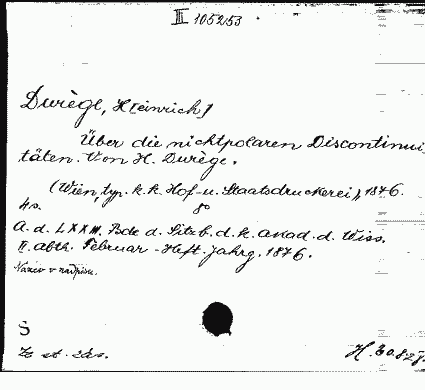 II 105253
Durège, H[einrich]
Über die nichtpolaren Discontinui-
täten. Von H. Durège.
(Wien, typ. k. k. Hof- u. Staatsdruckerei), 1876.
4 s. 8°
A. d. LXXIII. Bde d. Sitzb. d. k. Akad. d. Wiss.
II. Abth. Februar-Heft. Jahrg. 1876.
Název v nadpisu.
S